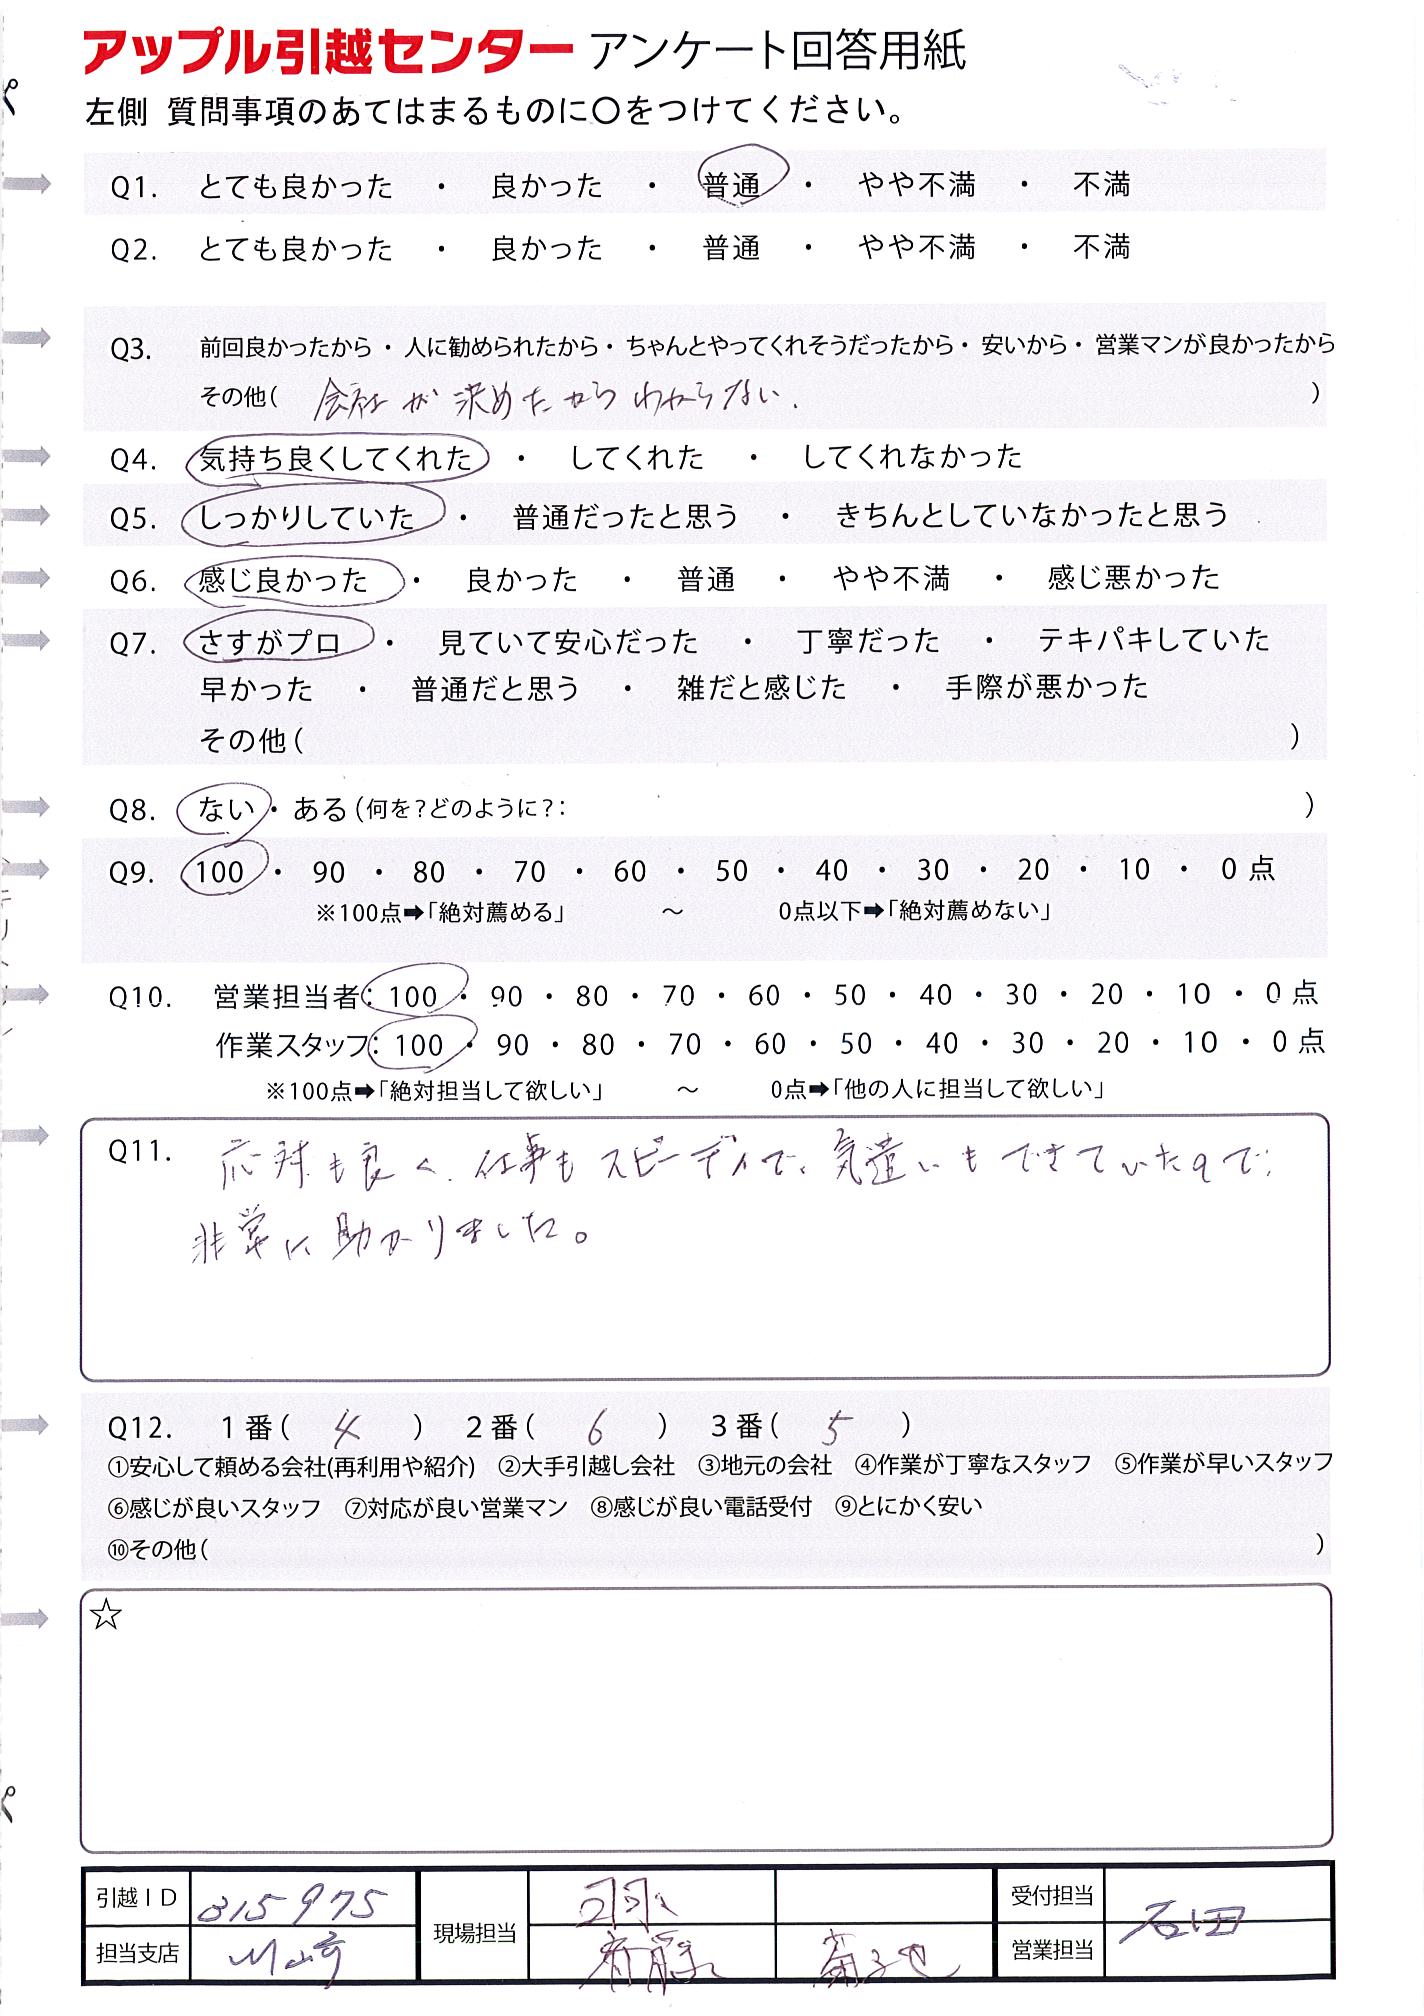 アップル引越センター アンケート回答用紙
左側 質問事項のあてはまるものに〇をつけてください。
Q1. とても良かった ・ 良かった ・ 普通 ・ やや不満 ・ 不満
Q2. とても良かった ・ 良かった ・ 普通 ・ やや不満 ・ 不満
Q3. 前回良かったから・人に勧められたから・ちゃんとやってくれそうだったから・安いから・営業マンが良かったから
その他( 会社が決めたからわからない. )
Q4. 気持ち良くしてくれた ・ してくれた ・ してくれなかった
Q5. しっかりしていた ・ 普通だったと思う ・ きちんとしていなかったと思う
Q6. 感じ良かった ・ 良かった ・ 普通 ・ やや不満 ・ 感じ悪かった
Q7. さすがプロ ・ 見ていて安心だった ・ 丁寧だった ・ テキパキしていた
早かった ・ 普通だと思う ・ 雑だと感じた ・ 手際が悪かった
その他( )
Q8. ない・ある(何を?どのように?: )
Q9. 100・90・80・70・60・50・40・30・20・10・0点
※100点➡「絶対薦める」 ～ 0点以下➡「絶対薦めない」
Q10. 営業担当者:100・90・80・70・60・50・40・30・20・10・0点
作業スタッフ:100・90・80・70・60・50・40・30・20・10・0点
※100点➡「絶対担当して欲しい」 ～ 0点➡「他の人に担当して欲しい」
Q11. 応対も良く、仕事もスピーディで、気遣いもできていたので、
非常に助かりました。
Q12. 1番( 4 ) 2番( 6 ) 3番( 5 )
①安心して頼める会社(再利用や紹介) ②大手引越し会社 ③地元の会社 ④作業が丁寧なスタッフ ⑤作業が早いスタッフ
⑥感じが良いスタッフ ⑦対応が良い営業マン ⑧感じが良い電話受付 ⑨とにかく安い
⑩その他( )
☆
引越ID 315975 現場担当 受付担当 石田
担当支店 川崎 斉藤 菊地 営業担当